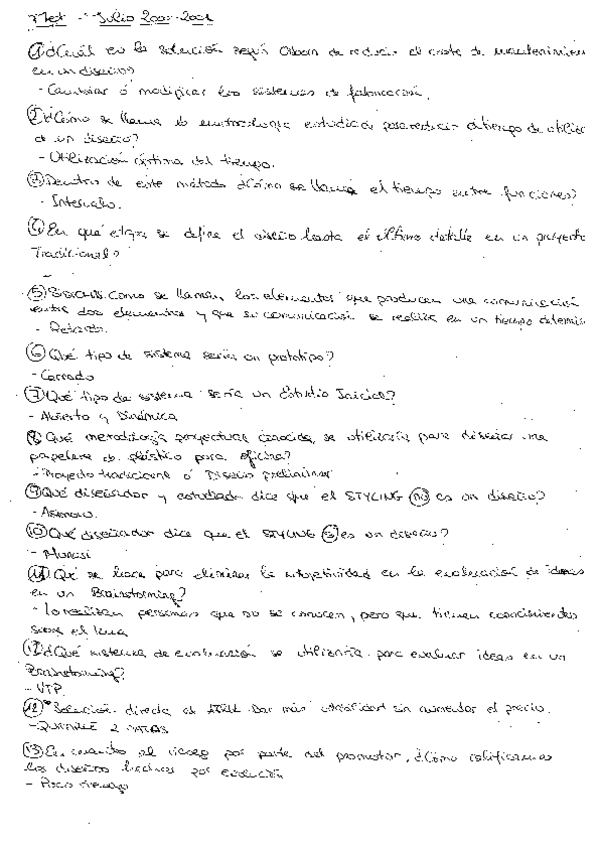 Met - Julio 2000-2001
① ¿Cuál es la solución según Osborn de reducir el coste de mantenimiento
en un diseño?
- Cambiar ó modificar los sistemas de fabricación.
② ¿Cómo se llama la metodología estudiada para reducir el tiempo de
de un diseño?
- Utilización óptima del tiempo.
③ Dentro de este método ¿Cómo se llama el tiempo entre funciones?
- Intervalo.
④ En qué etapa se define el diseño hasta el último detalle en un proyecto
Tradicional?
-
⑤ como se llaman los elementos que producen una comunicación
entre dos elementos y que su comunicación se realiza en un tiempo
- Retardo.
⑥ Qué tipo de sistema sería un prototipo?
- Cerrado
⑦ Qué tipo de sistema sería un Estudio Inicial?
- Abierto y Dinámica
⑧ Qué metodología proyectual conocida, se utilizaría para diseñar una
papelera de plástico para oficina?
- Proyecto tradicional ó Diseño preliminar
⑨ Qué diseñador y estudiado dice que el STYLING no es un diseño?
- Asimow.
⑩ Qué diseñador dice que el STYLING si es un diseño?
- Munari
⑪ Qué se hace para eliminar la subjetividad en la evaluación de ideas
en un Brainstorming?
- lo realizan personas que no se conocen, pero que tienen conocimientos
sobre el tema
¿Qué sistema de evaluación se utilizaría para evaluar ideas en un
Brainstorming?
- VTP.
⑫ Solución directa de dar más utilidad sin aumentar el precio.
⑬ En cuanto al riesgo por parte del promotor, ¿Cómo calificamos
los diseños hechos por evolución
- Poco riesgo